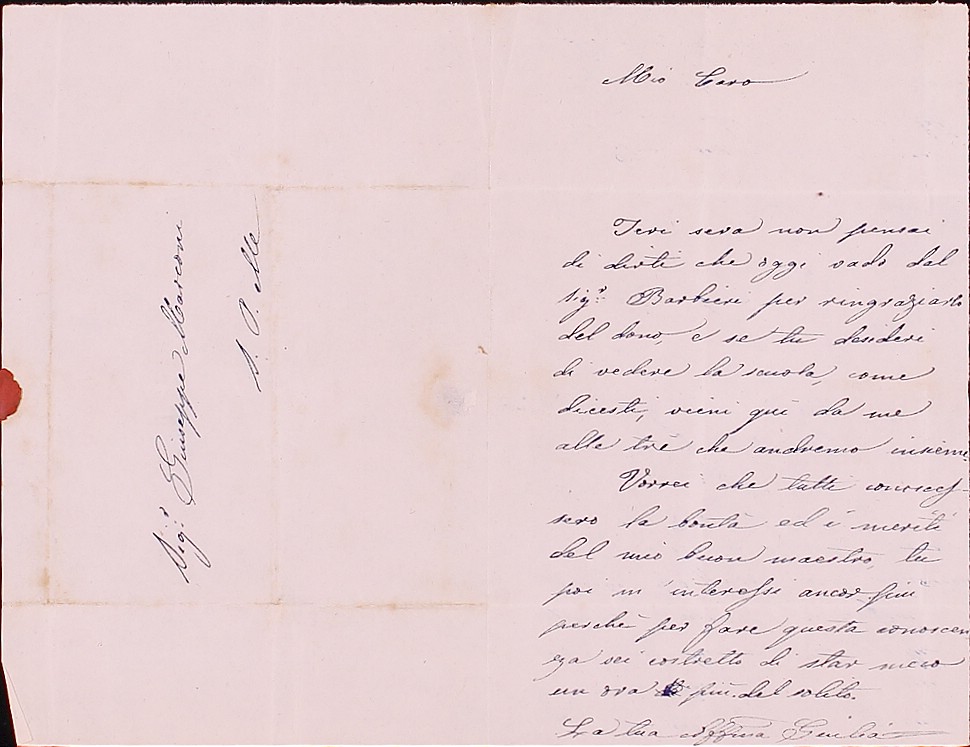 Sig.r Giuseppe Marconi
S. P. Mo
Mio Caro
Ieri sera non pensai
di dirti che oggi vado dal
Sig.r Barbieri per ringraziarlo
del dono, e se tu desideri
di vedere la scuola, come
dicesti, vieni qui da me
alle trè che andremo insieme.
Vorrei che tutti conosces-
sero la bontà ed i meriti
del mio buon maestro, tu
poi m'interessi ancor più
perchè per fare questa conoscen
za sei costretto di star meco
un ora più del solito.
La tua Affina Giulia